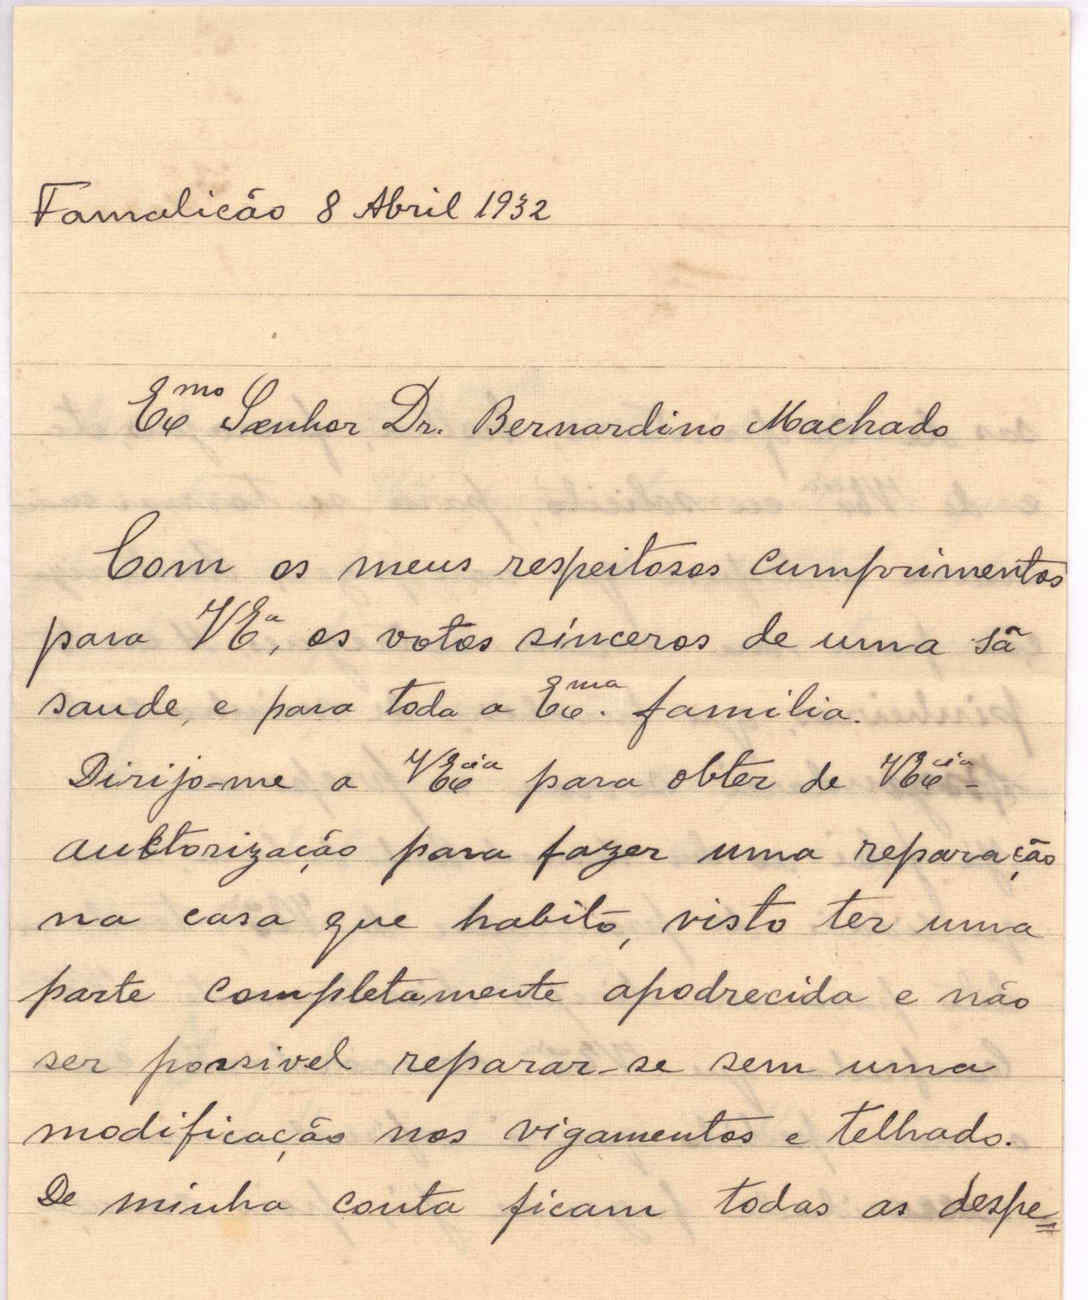 Famalicão 8 Abril 1932
Exmo Senhor Dr. Bernardino Machado
Com os meus respeitosos cumprimentos
para VEa, os votos sínceros de uma sã
saude, e para toda a Exma. familia.
Dirijo-me a VExcia para obter de VExcia-
auctorização para fazer uma reparação
na casa que habito, visto ter uma
parte completamente apodrecida e não
ser possivel reparar-se sem uma
modificação nos vigamentos e telhado.
De minha conta ficam todas as despe=